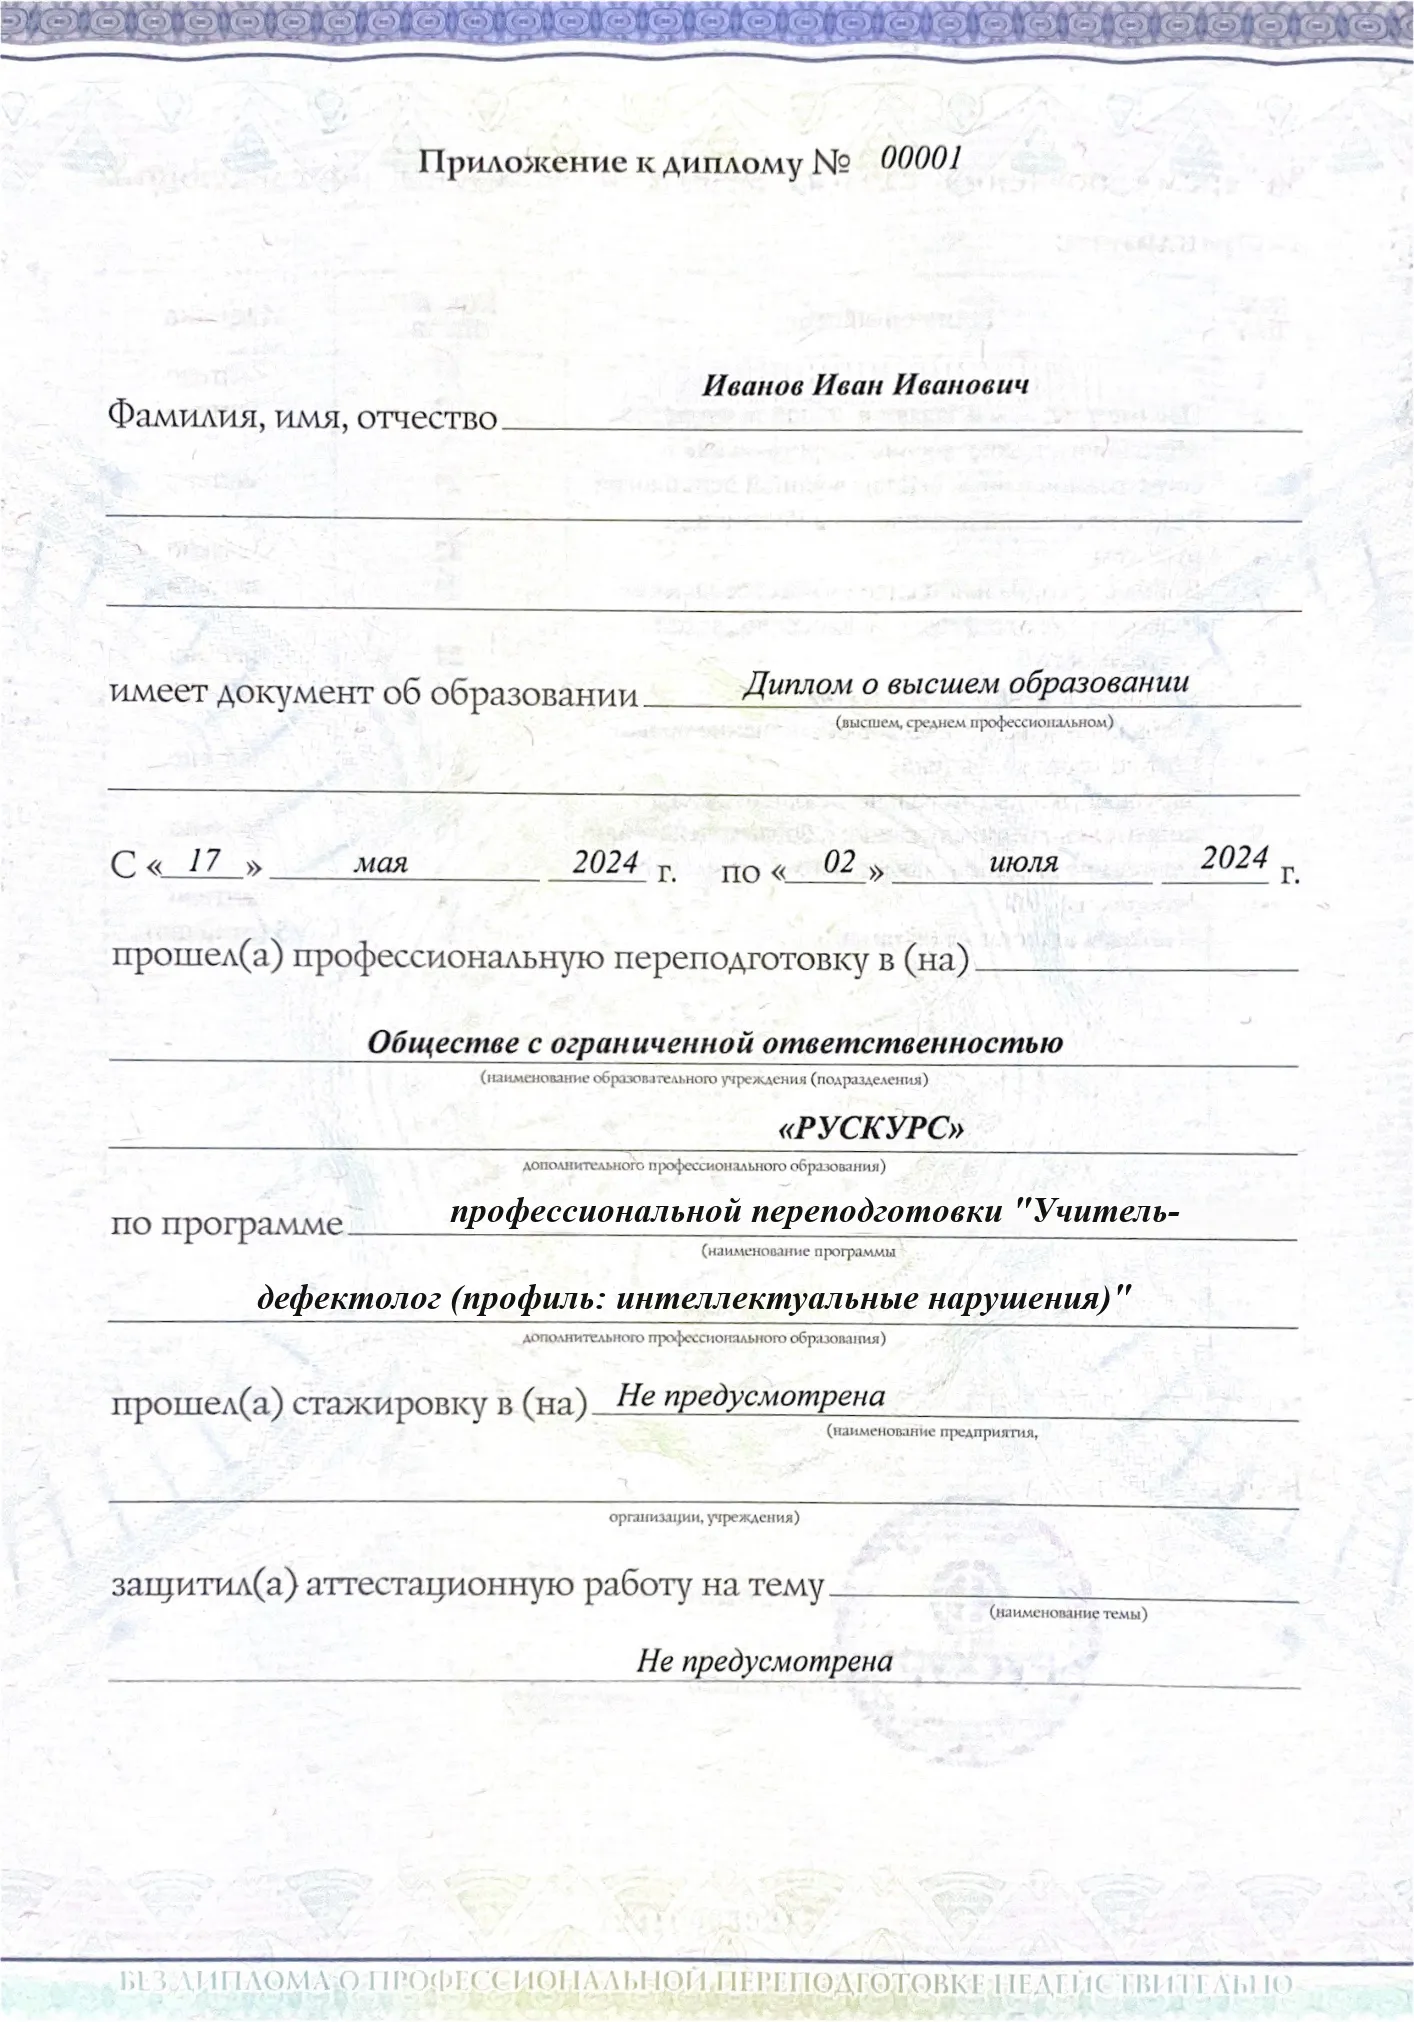 Приложение к диплому № 00001
Иванов Иван Иванович
Фамилия, имя, отчество
имеет документ об образовании Диплом о высшем образовании
(высшем, среднем профессиональном)
С «17» мая 2024 г. по «02» июля 2024 г.
прошел(а) профессиональную переподготовку в (на)
Обществе с ограниченной ответственностью
(наименование образовательного учреждения (подразделения)
«РУСКУРС»
дополнительного профессионального образования)
по программе профессиональной переподготовки "Учитель-
(наименование программы
дефектолог (профиль: интеллектуальные нарушения)"
дополнительного профессионального образования)
прошел(а) стажировку в (на) Не предусмотрена
(наименование предприятия,
организации, учреждения)
защитил(а) аттестационную работу на тему
(наименование темы)
Не предусмотрена
БЕЗ ДИПЛОМА О ПРОФЕССИОНАЛЬНОЙ ПЕРЕПОДГОТОВКЕ НЕДЕЙСТВИТЕЛЬНО